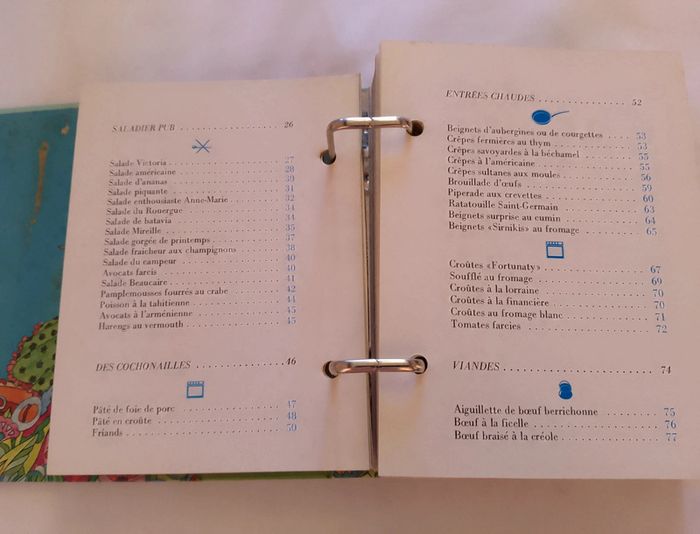 SALADIER PUB . . . . . . . . . . . . . . . . . 26
Salade Victoria . . . . . . . . . . . . . . . . . 27
Salade américaine . . . . . . . . . . . . . . . . . 28
Salade d'ananas . . . . . . . . . . . . . . . . . 39
Salade piquante . . . . . . . . . . . . . . . . . 31
Salade enthousiaste Anne-Marie . . . . . . . . . 32
Salade du Rouergue . . . . . . . . . . . . . . . . . 34
Salade de batavia . . . . . . . . . . . . . . . . . 34
Salade Mireille . . . . . . . . . . . . . . . . . 35
Salade gorgée de printemps . . . . . . . . . . . . 37
Salade fraîcheur aux champignons . . . . . . . . 38
Salade du campeur . . . . . . . . . . . . . . . . . 40
Avocats farcis . . . . . . . . . . . . . . . . . 40
Salade Beaucaire . . . . . . . . . . . . . . . . . 41
Pamplemousses fourrés au crabe . . . . . . . . . 42
Poisson à la tahitienne . . . . . . . . . . . . . . 44
Avocats à l'arménienne . . . . . . . . . . . . . . 45
Harengs au vermouth . . . . . . . . . . . . . . . . 45
DES COCHONAILLES . . . . . . . . . . . . . . . . 46
Pâté de foie de porc . . . . . . . . . . . . . . . . 47
Pâté en croûte . . . . . . . . . . . . . . . . . 48
Friands . . . . . . . . . . . . . . . . . 50
ENTRÉES CHAUDES . . . . . . . . . . . . . . . . 52
Beignets d'aubergines ou de courgettes . . . . . 53
Crêpes fermières au thym . . . . . . . . . . . . . 53
Crêpes savoyardes à la béchamel . . . . . . . . . 55
Crêpes à l'américaine . . . . . . . . . . . . . . . 55
Crêpes sultanes aux moules . . . . . . . . . . . . 56
Brouillade d'œufs . . . . . . . . . . . . . . . . . 59
Piperade aux crevettes . . . . . . . . . . . . . . 60
Ratatouille Saint-Germain . . . . . . . . . . . . . 63
Beignets surprise au cumin . . . . . . . . . . . . 64
Beignets «Sirnikis» au fromage . . . . . . . . . . 65
Croûtes «Fortunaty» . . . . . . . . . . . . . . . . 67
Soufflé au fromage . . . . . . . . . . . . . . . . 69
Croûtes à la lorraine . . . . . . . . . . . . . . . 70
Croûtes à la financière . . . . . . . . . . . . . . 70
Croûtes au fromage blanc . . . . . . . . . . . . . 71
Tomates farcies . . . . . . . . . . . . . . . . . 72
VIANDES . . . . . . . . . . . . . . . . . 74
Aiguillette de bœuf berrichonne . . . . . . . . . 75
Bœuf à la ficelle . . . . . . . . . . . . . . . . . 76
Bœuf braisé à la créole . . . . . . . . . . . . . . 77